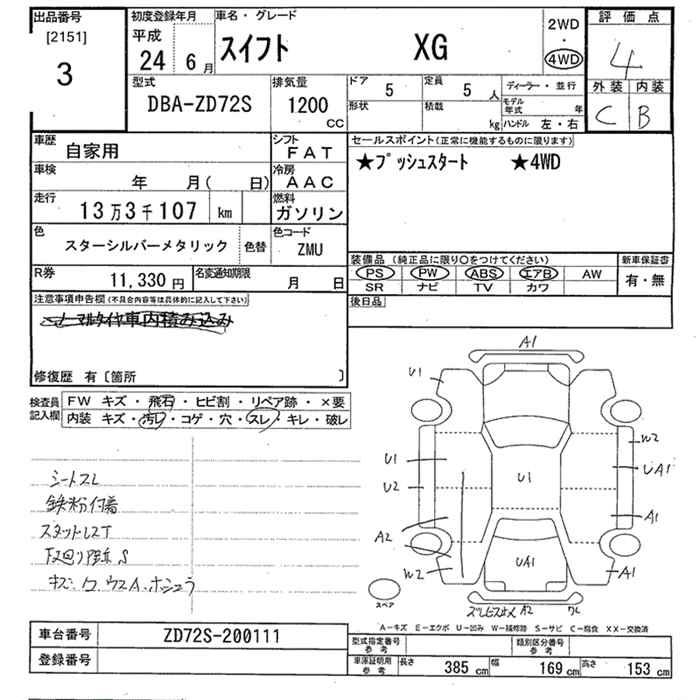 出品番号
[2151]
3
初度登録年月
平成
24 6月
車名・グレード
スイフト XG
2WD
・
4WD
評価点
4
外装 内装
C B
型式
DBA-ZD72S
排気量
1200
CC
ドア 5
定員 5 人
ディーラー・並行
形状
積載 kg
モデル年式 年
ハンドル 左・右
車歴
自家用
シフト
FAT
車検
年 月( 日)
冷房
AAC
走行
13万3千107 km
燃料
ガソリン
色
スターシルバーメタリック
色替
色コード
ZMU
R券
11,330 円
名変通知期限
月 日
セールスポイント(正常に機能するものに限ります)
★プッシュスタート ★4WD
装備品 (純正品に限り○をつけてください)
新車保証書
PS PW ABS エアB AW
有・無
SR ナビ TV カワ
後日品
注意事項申告欄(不具合内容等は具体的に記入して下さい)
ノーマルタイヤ車内積み込み
修復歴 有〔箇所 〕
検査員
記入欄
FW キズ・飛石・ヒビ割・リペア跡・×要
内装 キズ・汚レ・コゲ・穴・スレ・キレ・破レ
シートスレ
鉄粉付着
スタットレスT
A1
U1
W2
U1
UA1
U2
U1
A1
A2
UA1
W2
A1
A2
スペア
A-キズ E-エクボ U-凹み W-補修跡 S-サビ C-腐食 XX-交換済
車台番号
ZD72S-200111
登録番号
型式指定番号
参考
類別区分番号
参考
車庫証明用
参考
長さ 385 cm
幅 169 cm
高さ 153 cm